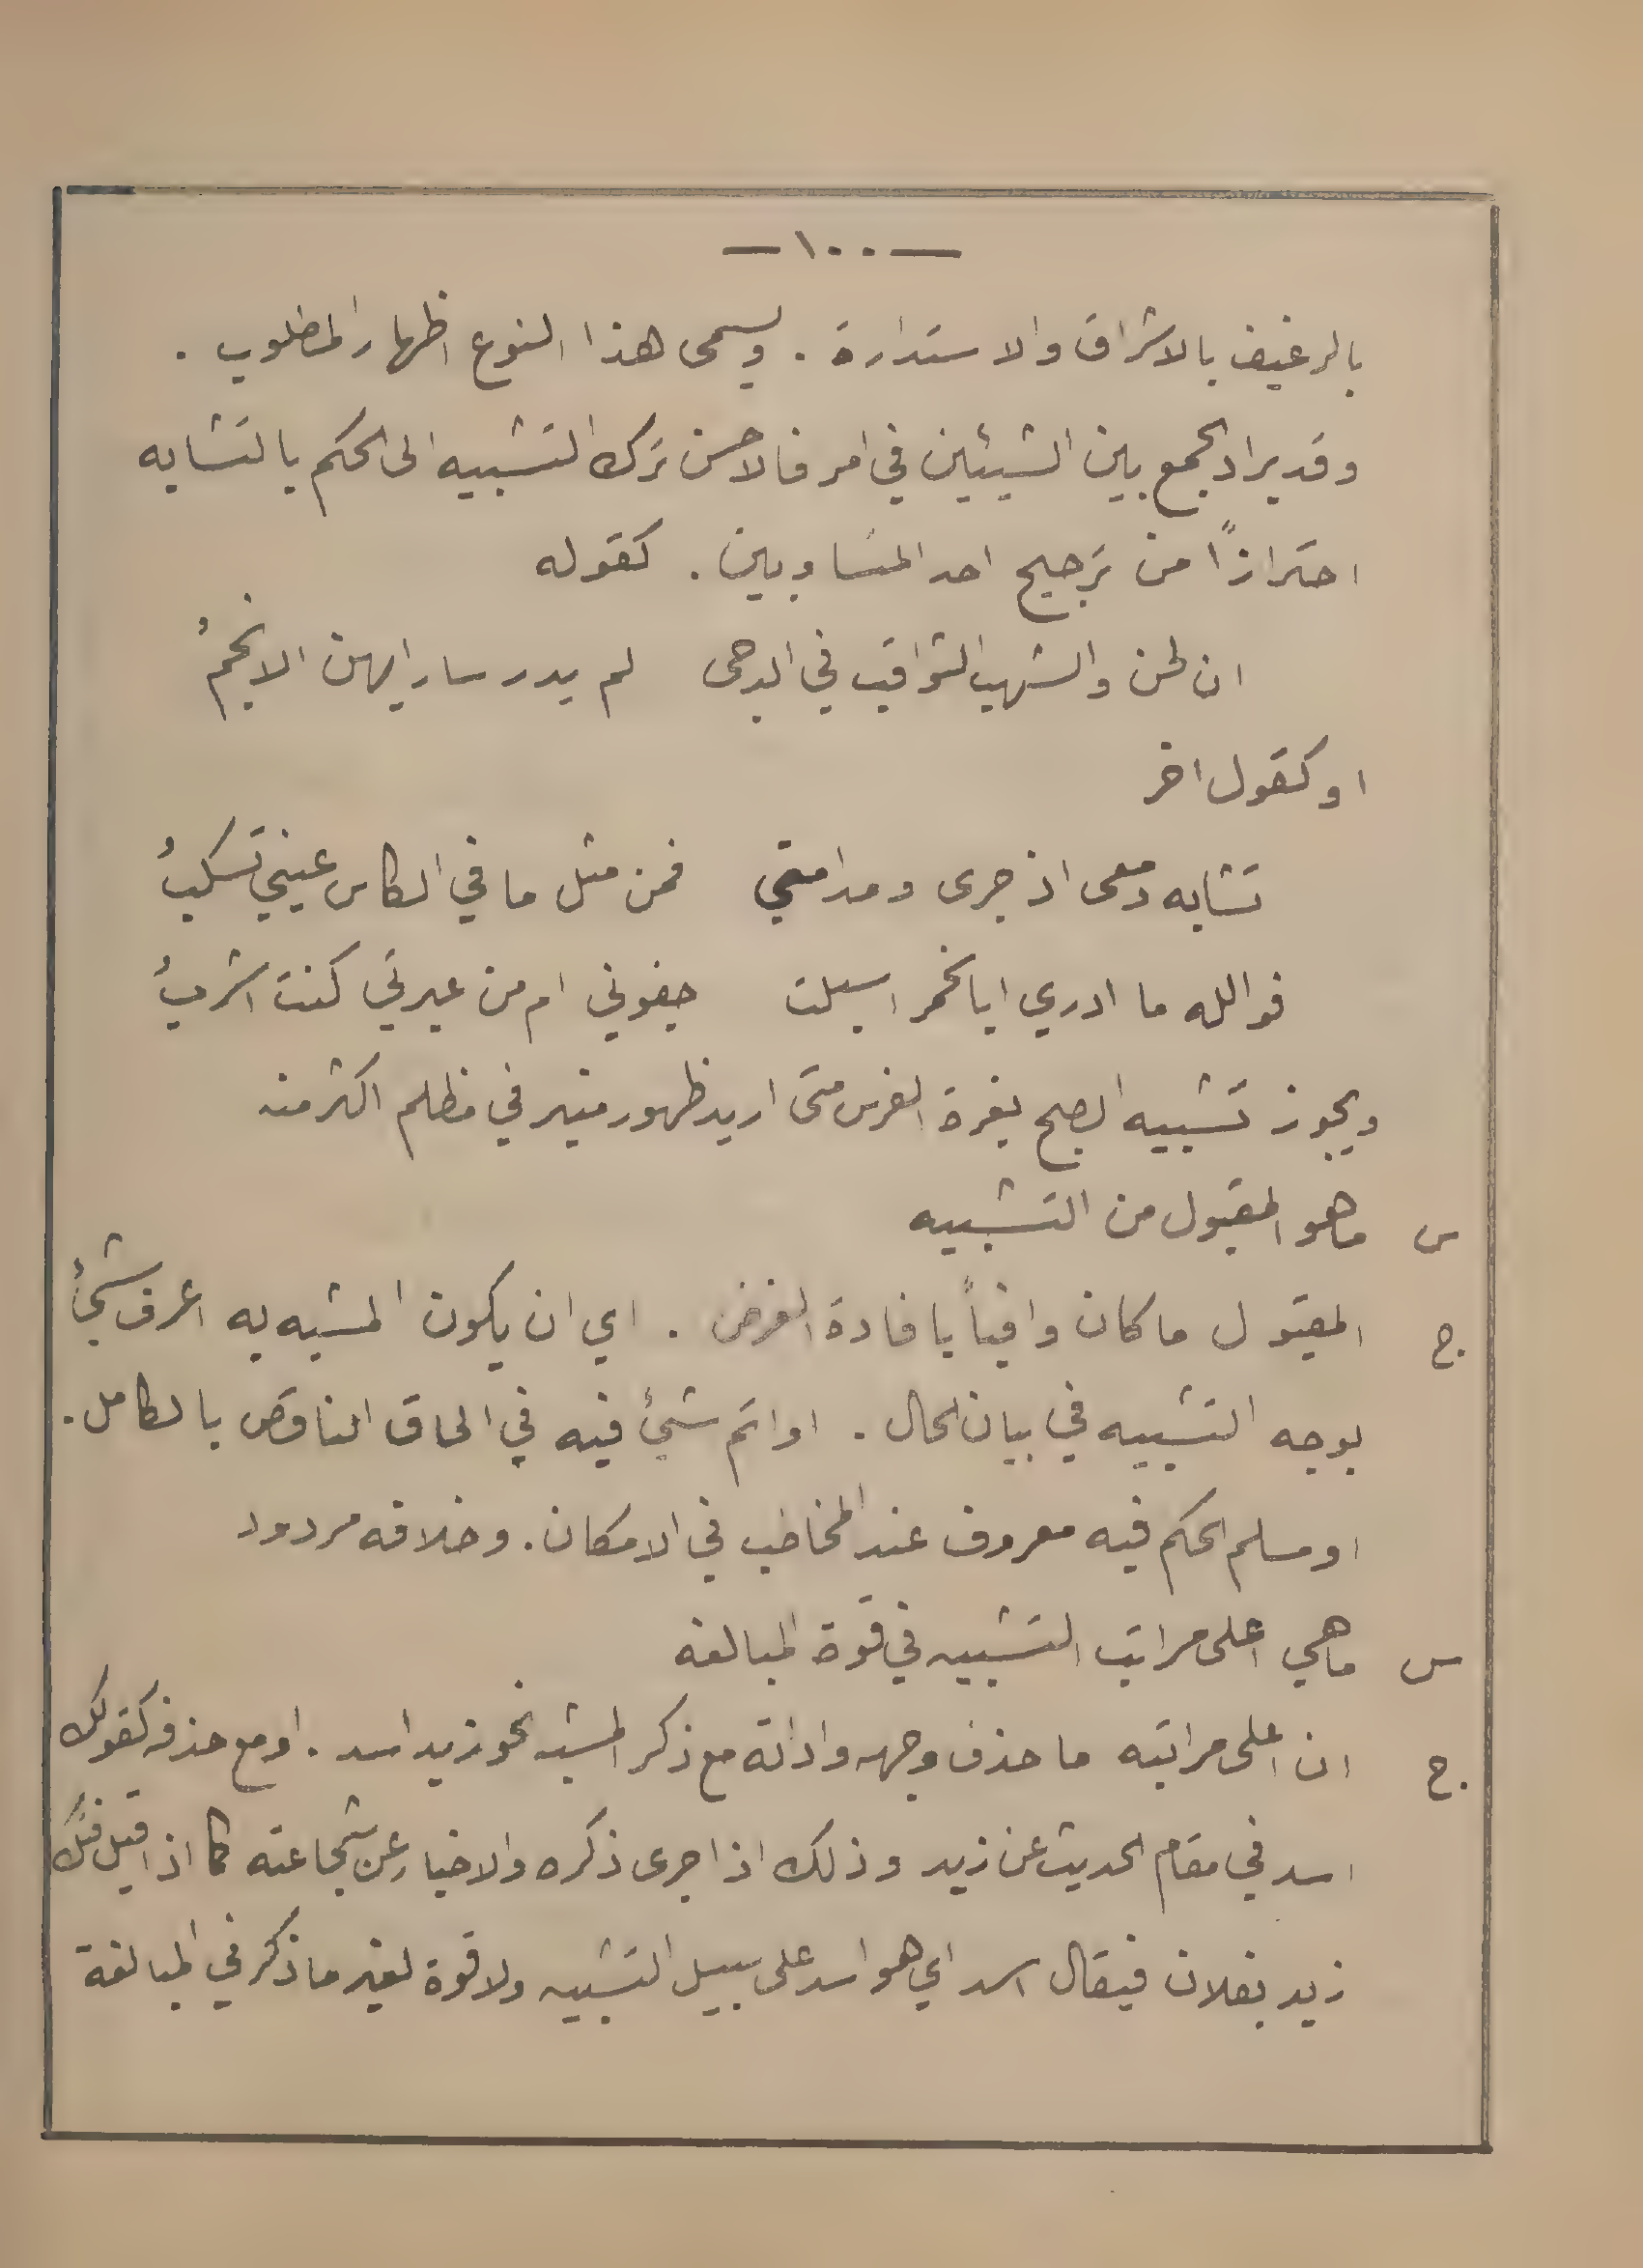 — ١٠٠ —
بالرغيف بالاشراق والاستدارة . ويسمى هذا النوع اظهار المطلوب .
وقد يراد الجمع بين الشيئين في امر فالاحسن ترك التشبيه الى الحكم بالتشابه
احترازًا من ترجيح احد المتساويين . كقوله
ان لحن والشهب الثواقب في الدجى لم يدر سار ايهن الانجمُ
او كقول اخر
تشابه دمعى اذ جرى ومدامتي فمن مثل ما في الكاس عيني تسكبُ
فوالله ما ادري ابا لخمر اسبلت جفوني ام من عبرتي كنت اشربُ
ويجوز تشبيه الصبح بغرة الفرس متى اريد ظهور منير في مظلم اكثر منه
س ما هو المقبول من التشبيه
ج. المقبول ما كان وافياً بافادة الغرض . اي ان يكون المشبه به اعرف شيءُ
بوجه التشبيه في بيان الحال . او اتم شيءُ فيه في الحاق الناقص بالكامل .
او مسلم الحكم فيه معروف عند المخاطب في الامكان . وخلافه مردود
س ما هي اعلى مراتب التشبيه في قوة المبالغه
ج. ان اعلى مراتبه ما حذف وجهه واداته مع ذكر المشبه نحو زيد اسد . او مع حذفه كقولك
اسد في مقام الحديث عن زيد وذلك اذا جرى ذكره والاخبار عن شجاعته كما اذا قيل فتك
زيد بفلان فيقال اسد اي هو اسد على سبيل التشبيه ولا قوة لغير ما ذكر في المبالغة